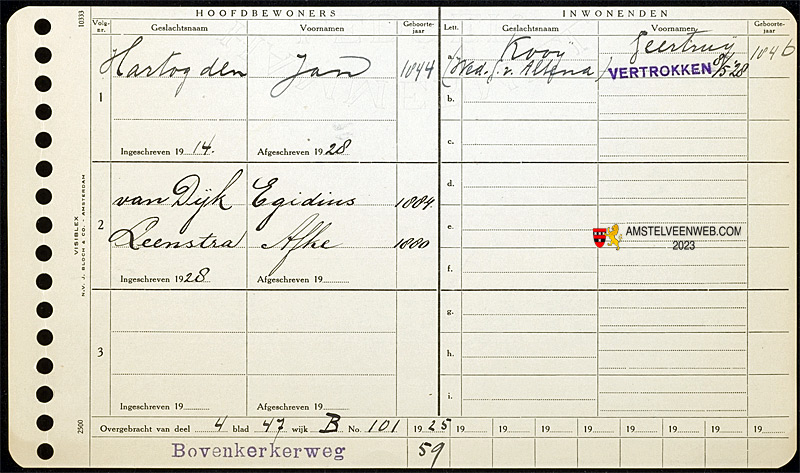 10333
HOOFDBEWONERS
INWONENDEN
Volg-
nr.
Geslachtsnaam
Voornamen
Geboorte-
jaar
Lett.
Geslachtsnaam
Voornamen
Geboorte-
jaar
Hartog den
Jan
1844
Kooij
Geertruij
1846
(Wed. J. v. Altena)
VERTROKKEN
5 '28
1
b.
c.
Ingeschreven 19 14.
Afgeschreven 19 28
van Dijk
Egidius
1884
d.
2
Leenstra
Afke
1880
e.
AMSTELVEENWEB.COM
2023
f.
Ingeschreven 19 28
Afgeschreven 19
VISIBLEX
N.V. J. BLOCH & CO. AMSTERDAM
g.
3
h.
i.
Ingeschreven 19
Afgeschreven 19
2500
Overgebracht van deel 4 blad 47 wijk B No. 101
19 25 19 19 19 19 19 19 19 19
Bovenkerkerweg
59